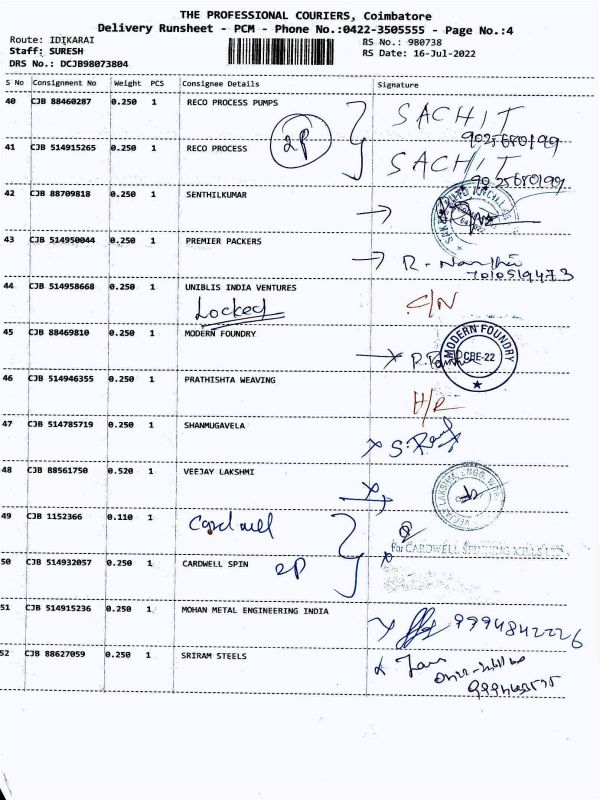 THE PROFESSIONAL COURIERS, Coimbatore
Delivery Runsheet - PCM - Phone No.:0422-3505555 - Page No.:4
Route: IDIKARAI
Staff: SURESH
DRS No.: DCJB98073804
RS No.: 980738
RS Date: 16-Jul-2022
S No Consignment No Weight PCS Consignee Details Signature
40 CJB 88460287 0.250 1 RECO PROCESS PUMPS SACHIT
9025680199
2P
41 CJB 514915265 0.250 1 RECO PROCESS SACHIT
9025680199
42 CJB 88709818 0.250 1 SENTHILKUMAR
43 CJB 514950044 0.250 1 PREMIER PACKERS R.
7010519473
44 CJB 514958668 0.250 1 UNIBLIS INDIA VENTURES C/N
Locked
45 CJB 88469810 0.250 1 MODERN FOUNDRY
MODERN FOUNDRY CBE-22
46 CJB 514946355 0.250 1 PRATHISHTA WEAVING H/R
47 CJB 514785719 0.250 1 SHANMUGAVELA
48 CJB 88561750 0.520 1 VEEJAY LAKSHMI
49 CJB 1152366 0.110 1 Cardwell
For CARDWELL SPINNING MILLS LTD
50 CJB 514932057 0.250 1 CARDWELL SPIN 2P
51 CJB 514915236 0.250 1 MOHAN METAL ENGINEERING INDIA 9994842226
52 CJB 88627059 0.250 1 SRIRAM STEELS